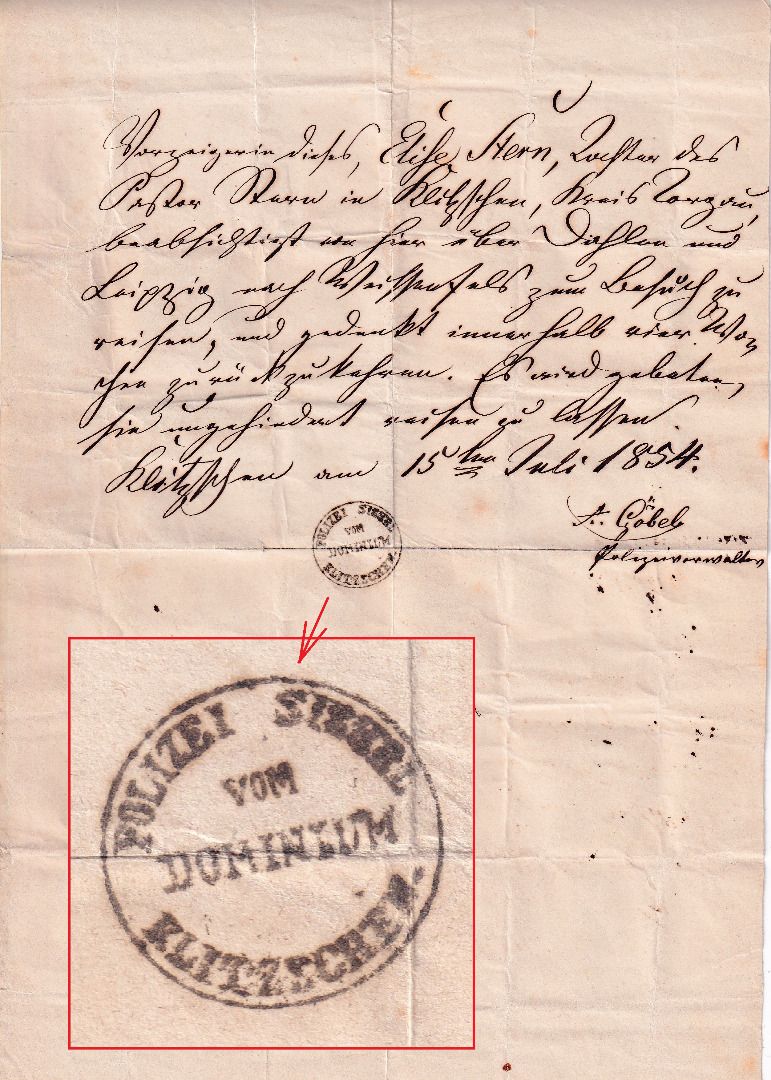 Vorzeigerin dieses, Elise Stern, Tochter des
Pastor Stern in Klitzschen, Kreis Torgau,
beabsichtigt von hier über Dahlen und
Leipzig nach Weissenfels zum Besuch zu
reisen, und gedenkt innerhalb vier Wo-
chen zurückzukehren. Es wird gebeten,
sie ungehindert reisen zu lassen.
Klitzschen am 15ten Juli 1854.
A. Göbel
Polizeiverwalter
POLIZEI SIEGEL
VOM
DOMINIUM
KLITZSCHEN.
POLIZEI SIEGEL
VOM
DOMINIUM
KLITZSCHEN.